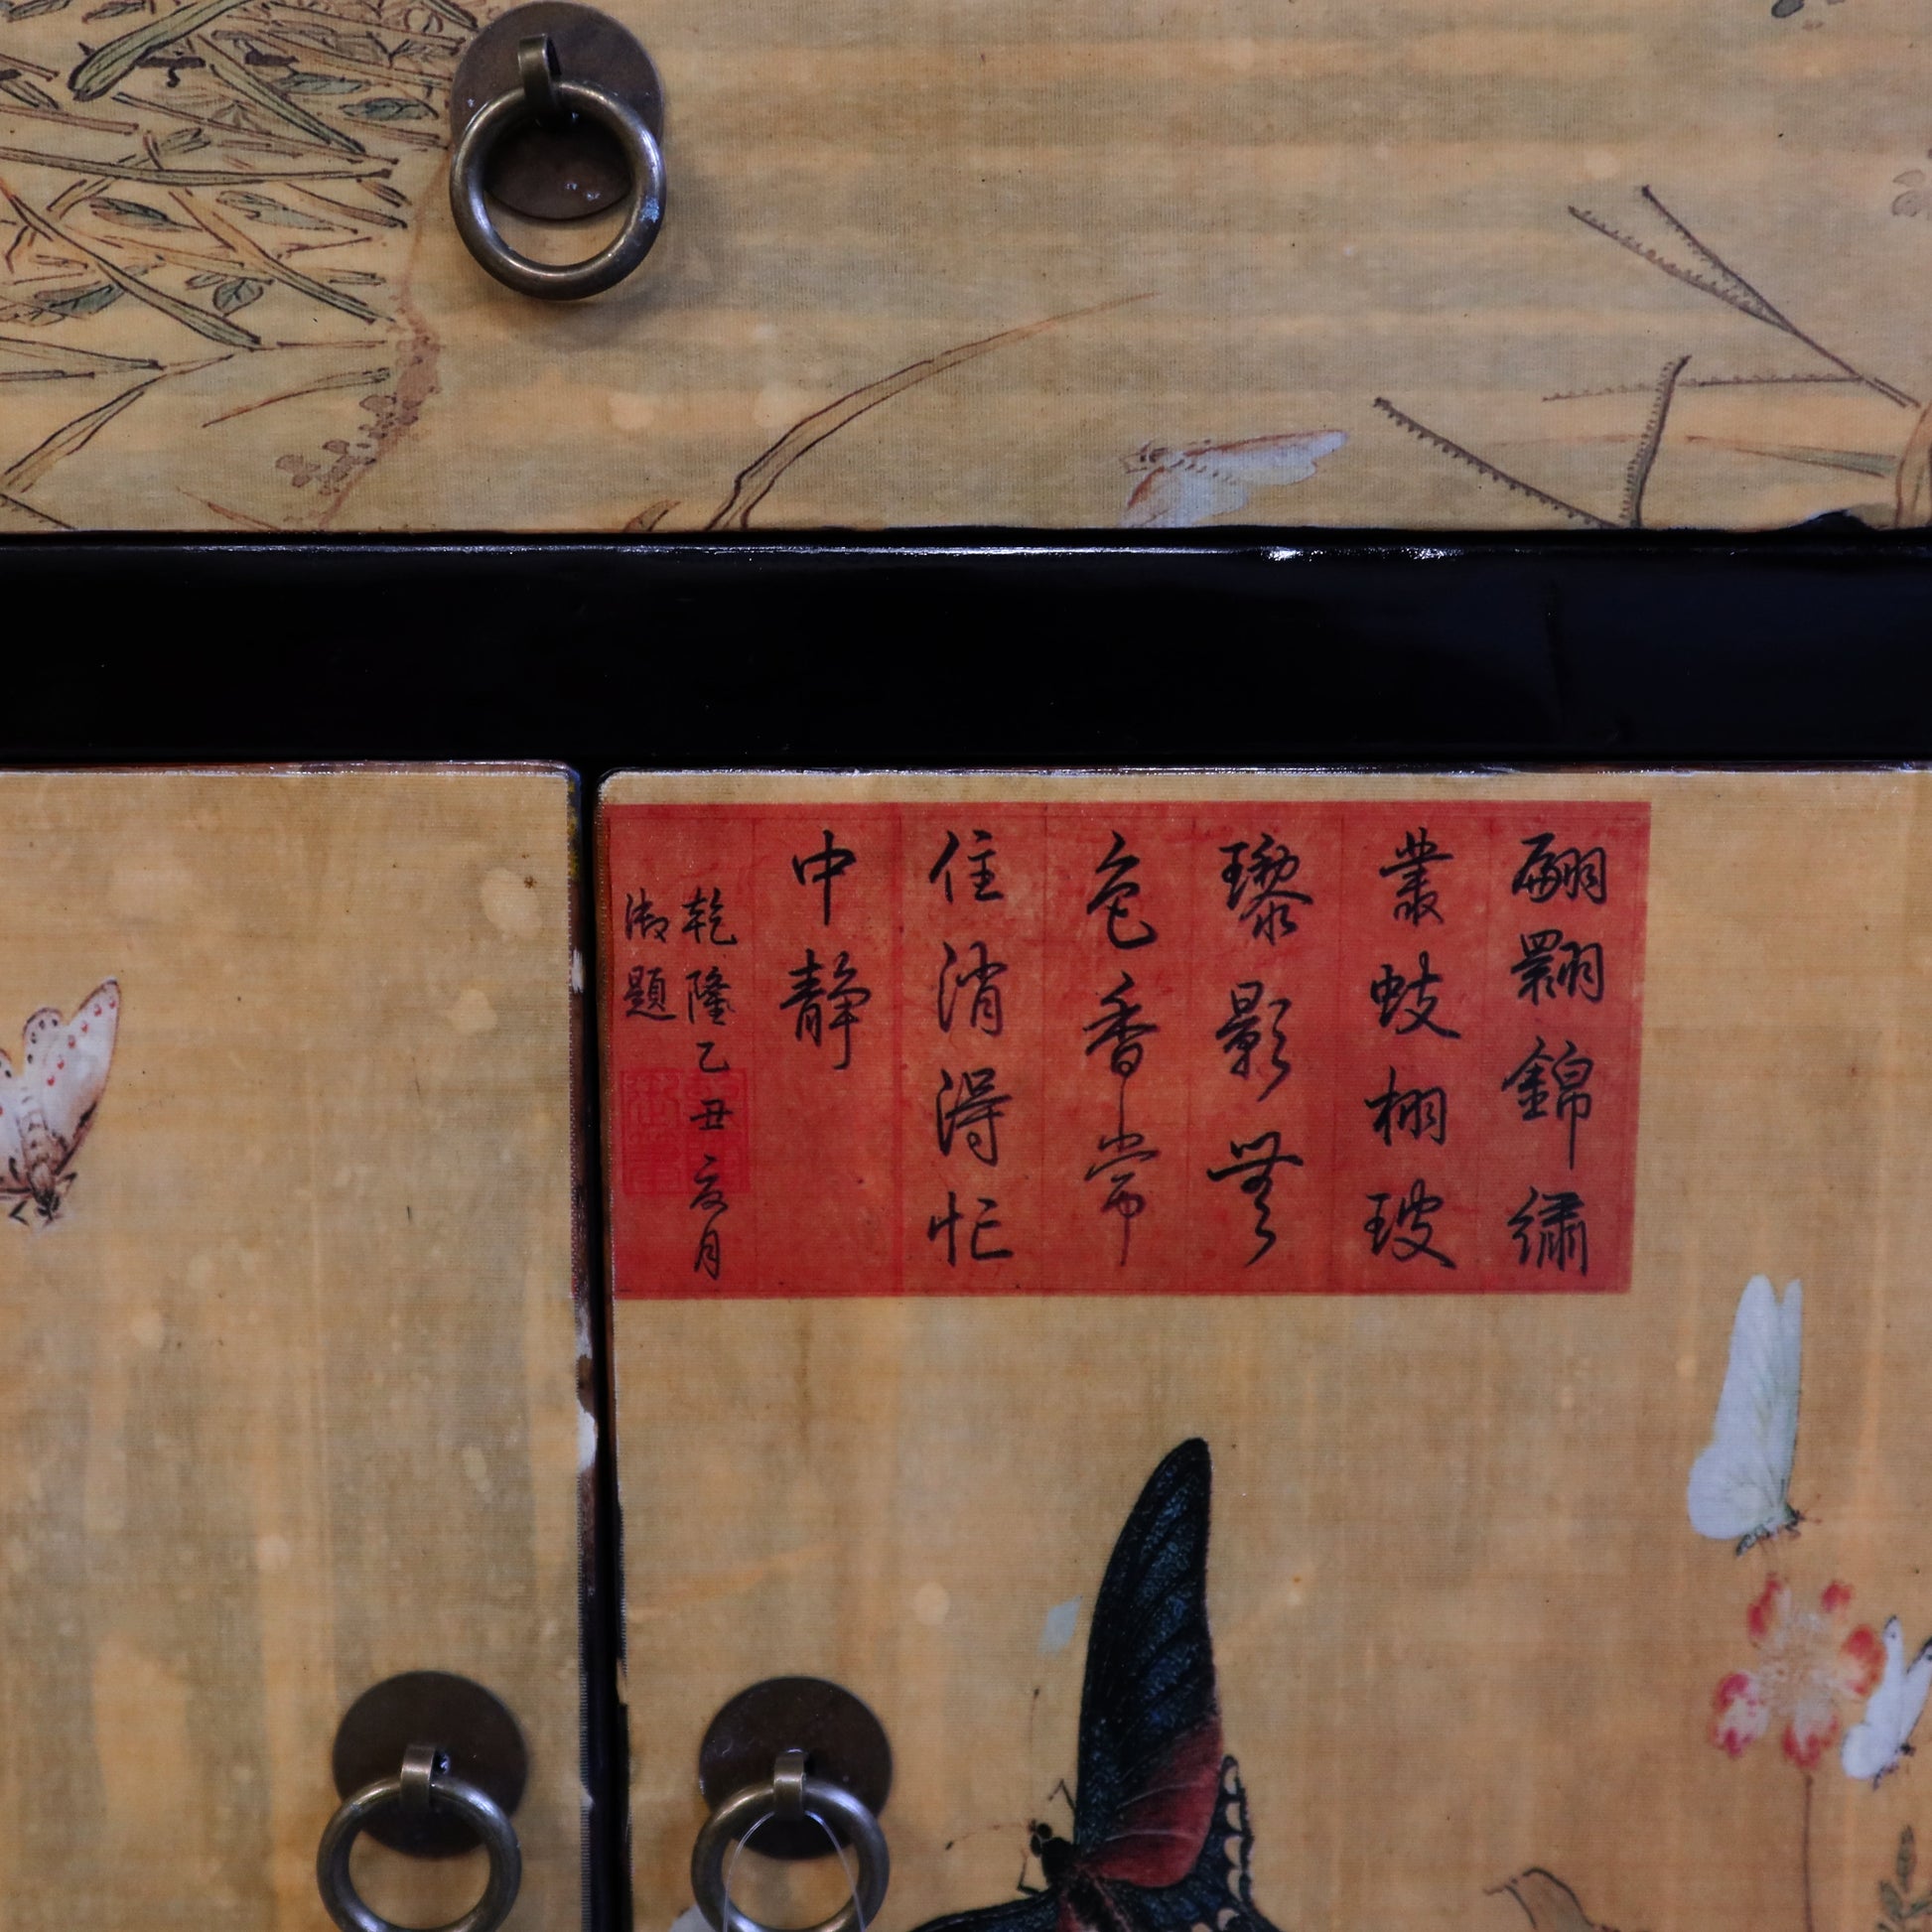 翩翾錦繡
叢蛱栩玻
瓈影無
色香常
住消得忙
中静
乾隆乙丑夏月
御題